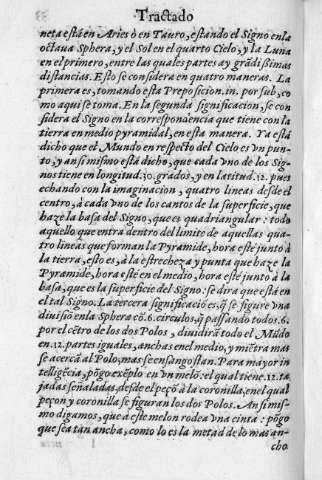 Tractado
neta està en Aries ò en Tauro, estando el Signo en la
octaua Sphera, y el Sol en el quarto Cielo, y la Luna
en el primero, entre las quales partes ay grãdißimas
distancias. Esto se considera en quatro maneras. La
primera es, tomando esta Preposicion. in. por sub, co
mo aqui se toma. En la segunda significacion, se con
sidera el Signo en la correspondencia que tiene con la
tierra en medio pyramidal, en esta manera. Ya està
dicho que el Mundo en respecto del Cielo es vn pun-
to, y ansi mismo està dicho, que cada vno de los Sig-
nos tiene en longitud .30. grados, y en latitud .12. pues
echando con la imaginacion, quatro lineas desde el
centro, à cada vno de los cantos de la superficie, que
haze la basa del Signo, que es quadriangular: todo
aquello que entra dentro del limite de aquellas qua-
tro lineas que forman la Pyramide, hora estè junto à
la tierra, esto es, à la estrecheza y punta que haze la
Pyramide, hora estè en el medio, hora estè junto à la
basa, que es la superficie del Signo: se dira que està en
el tal Signo. La tercera significaciõ es, q̃ se figure vna
diuisiõ en la Sphera cõ .6. circulos, q̃ passando todos .6.
por el cẽtro de los dos Polos, diuidirã todo el Mũdo
en .12. partes iguales, anchas en el medio, y miẽtra mas
se acercã al Polo, mas se ensangostan. Para mayor in
telligẽcia, põgo exẽplo en vn melõ: el qual tiene .12. ta
jadas señaladas desde el peçõ à la coronilla, en el qual
peçon y coronilla se figuran los dos Polos. Ansi mis-
mo digamos, que à este melon rodea vna cinta: põgo
que sea tan ancha, como lo es la metad de lo mas an-
cho